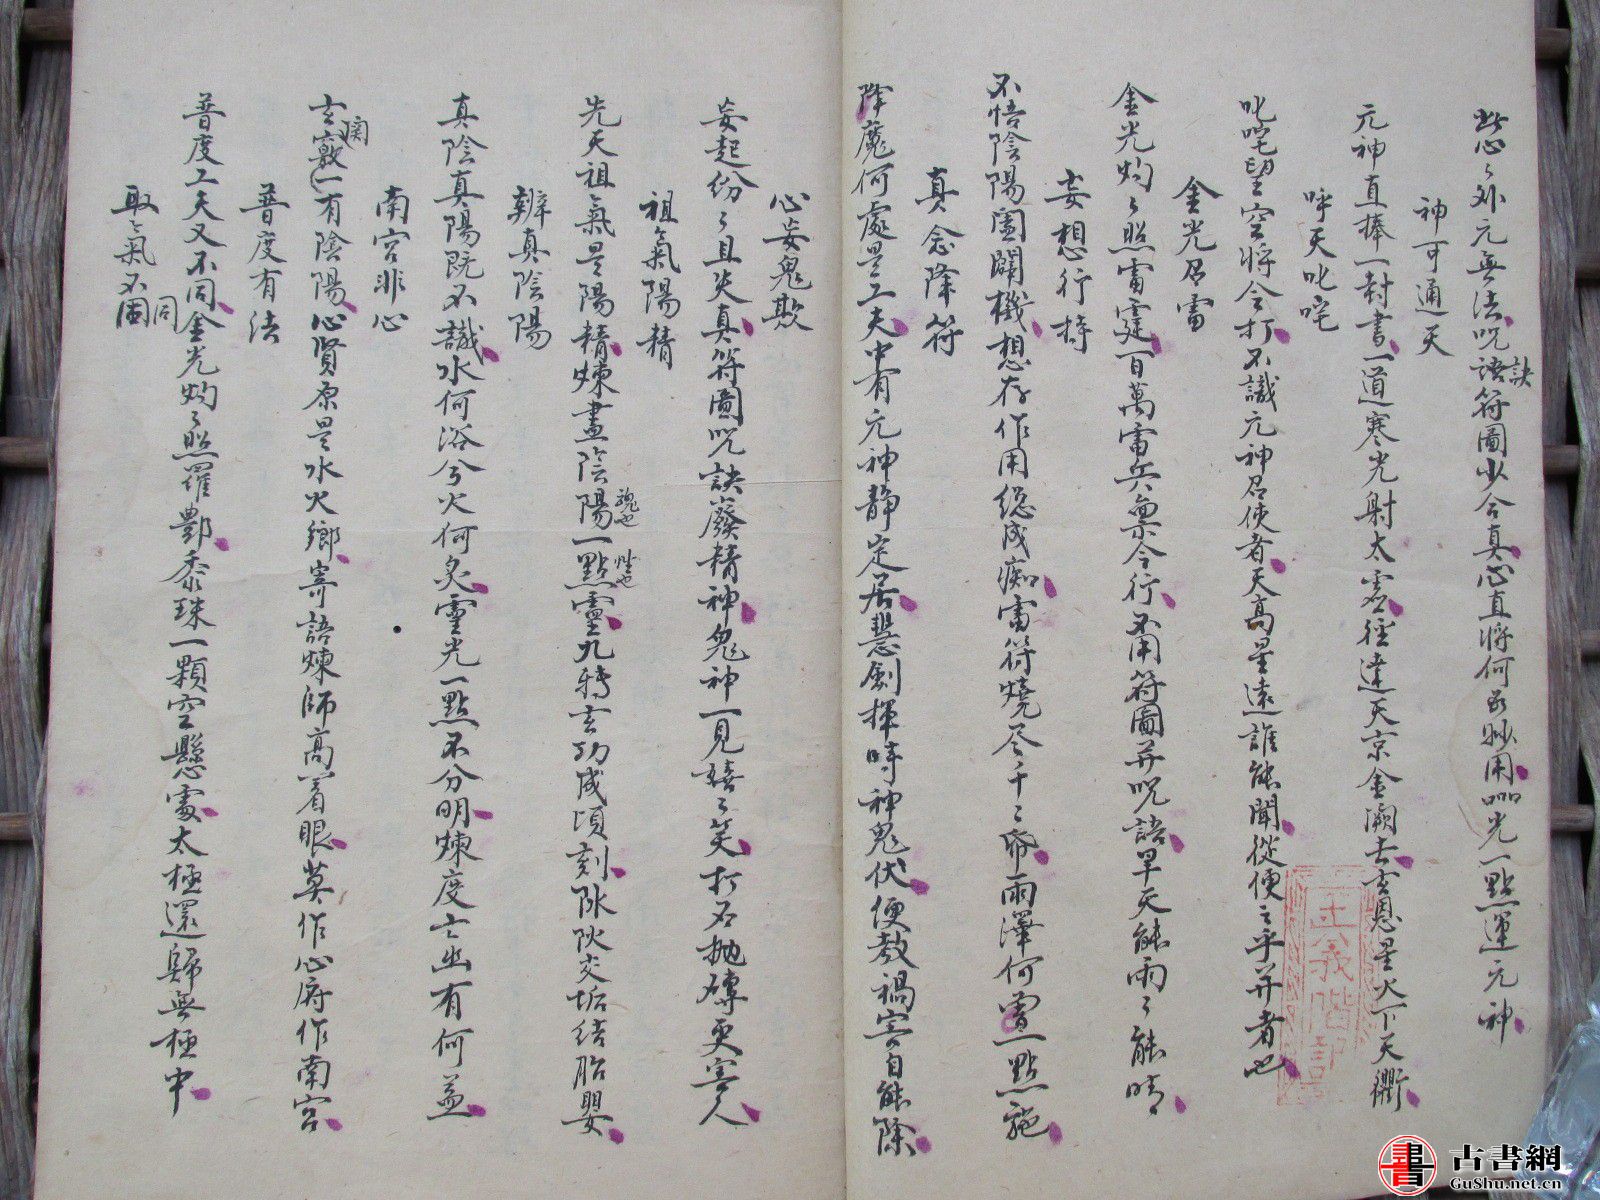 此心之外元無法咒語訣符圖少合真心直將何爲妙用皿光一點運元神
神可通天
元神直捧一封書一道寒光射太虛徑達天京金闕去玄恩星火下天衢
呼天叱咤
叱咤望空將令打不識元神召使者天高星遠誰能聞從使之乎并者也
金光召雷
金光灼灼照雷霆百萬雷兵稟令行不用符圖并咒語旱天能雨雨能晴
妄想行持
不悟陰陽闔闢機想存作用總成痴雷符燒尽千千帋雨澤何曾一點施
真念降符
降魔何處是工夫中有元神靜定居慧劍揮時神鬼伏便教禍害自能除
心妄鬼欺
妄起纷纷且失真符圖咒訣廢精神鬼神一見嘻嘻笑打石拋磚更害人
祖氣陽精
先天祖氣是陽精煉盡陰陽一點靈九轉玄功成頃刻
魂也 性也
辨真陰陽
真陰真陽既不識水何浴兮火何炙靈光一點不分明煉度亡幽有何益
南宮非心
玄關竅一有陰陽心腎原是水火鄉寄語煉師高着眼莫作心府作南宮
普度有法
普度工夫又不同金光灼灼照羅酆黍珠一顆空懸處太極還歸無極中
取氣不同
正義階記
古書網
GuShu.net.cn